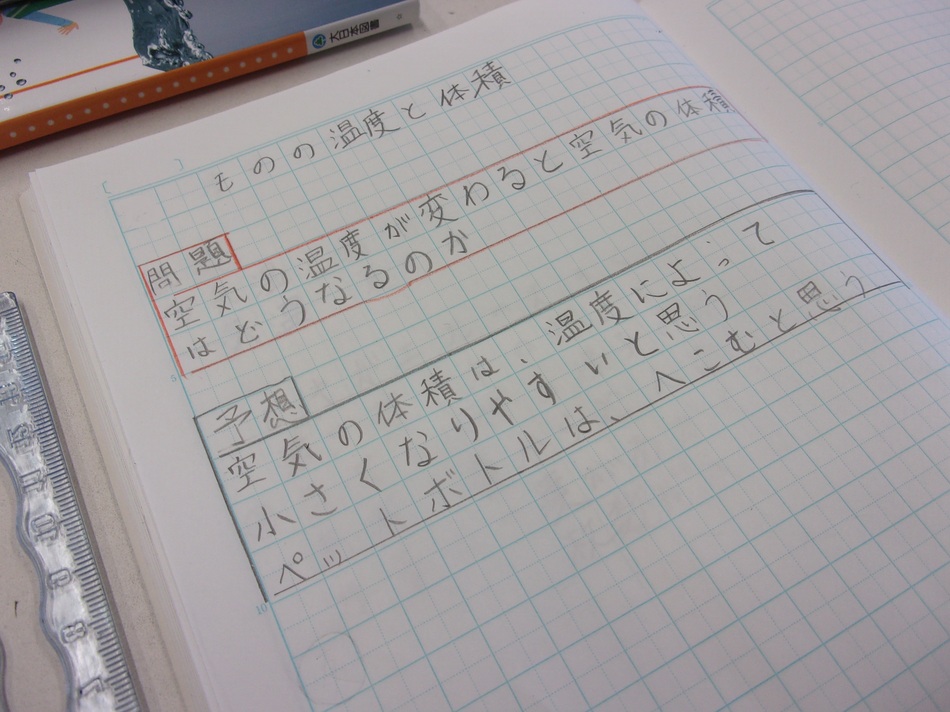 大日本図書
ものの温度と体積
問題
空気の温度が変わると空気の体積
はどうなるのか
予想
空気の体積は、温度によって
小さくなりやすいと思う
ペットボトルは、へこむと思う